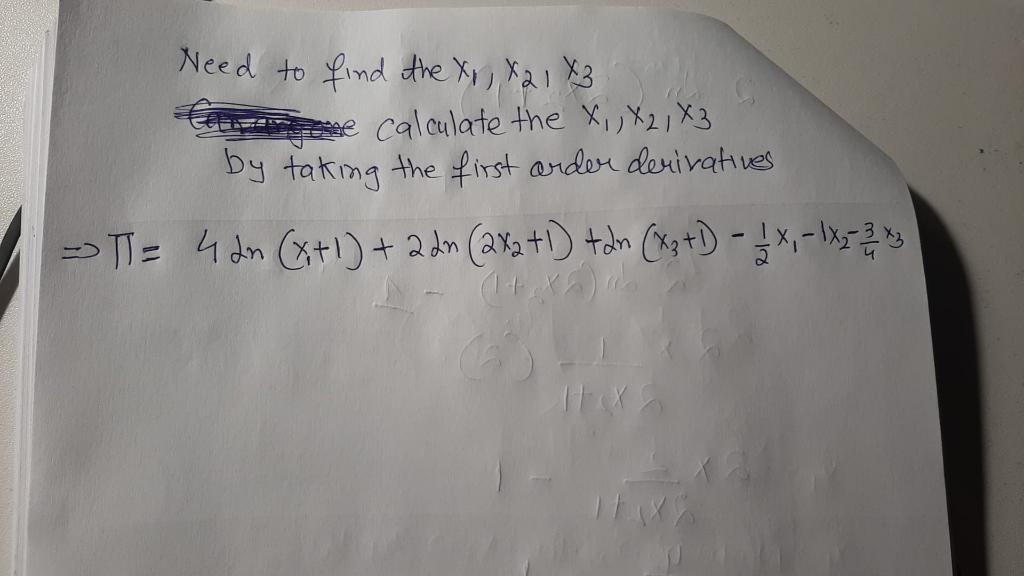 Need to find the x₁, x₂, x₃
calculate the x₁, x₂, x₃
by taking the first order derivatives
⇒ Π = 4 ln (x₁+1) + 2 ln (2x₂+1) + ln (x₃+1) - 1/2 x₁ - 1x₂ - 3/4 x₃